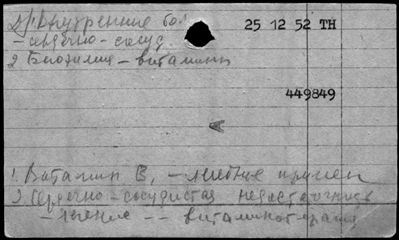 Внутренние бол.
25 12 52 ТН
- сердечно - сосуд.
2 Биохимия - витамины
449849
А
1. Витамин В, - лечебное примен
2 Сердечно - сосудистая недостаточность
- лечение -- витаминотерапия